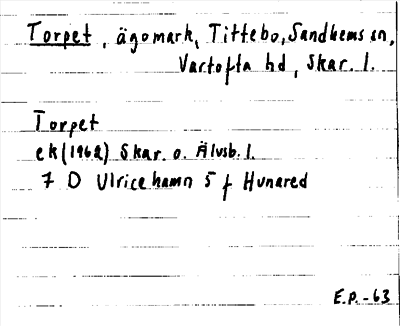 Torpet, ägomark, Tittebo, Sandhems sn,
Vartofta hd, Skar. l.
Torpet
ek (1962) Skar. o. Älvsb. l.
7 D Ulricehamn 5 f Hunared
E.P.-63